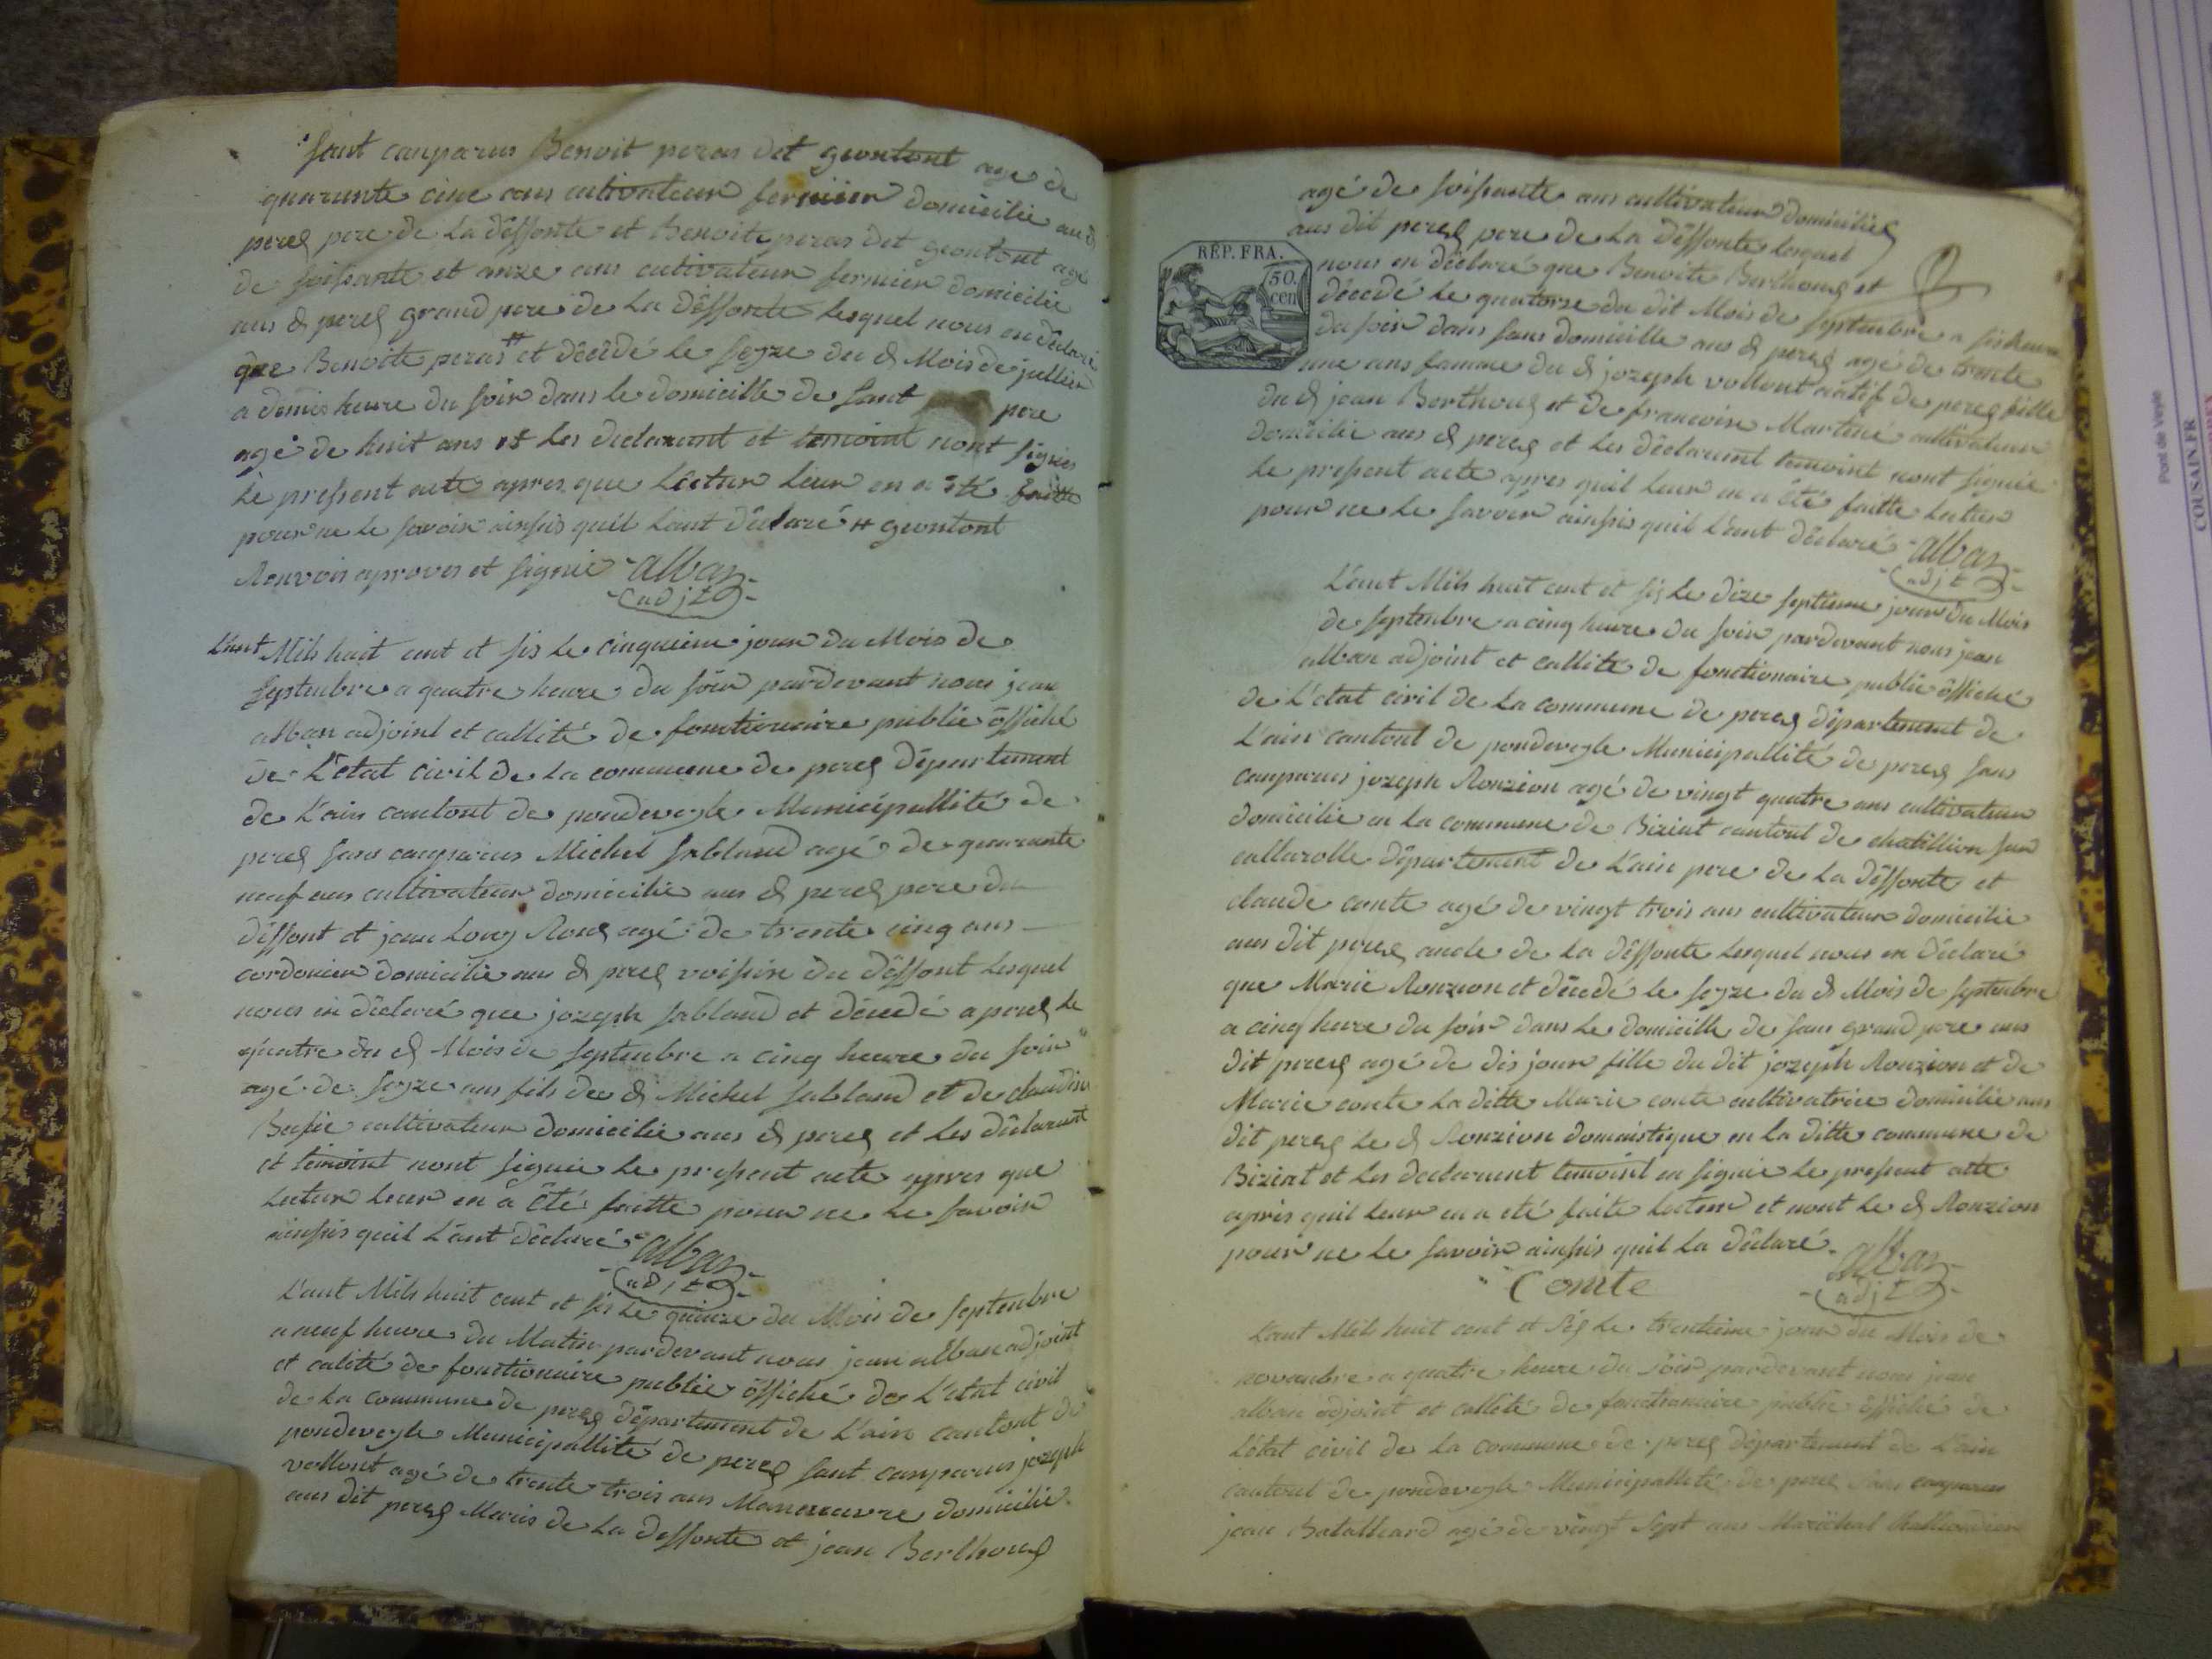 Sont conparus Benoit peras dit geontont age de
quarante cinc ans cultivateur fermier domicilie au d
perex pere de la déffonte et Benoite peras dit geontont agé
de soissante et onze ans cultivateur fermier domicilie
aus d perex grand pere de la déffonte lesquel nous on déclaré
que Benoite peras # et décédé le sezze du d Mois de jullier
a demis heure du soir dans le domicille de sont pere
agé de huit ans et les declarant et temoint nont signiés
le pressent acte apres que lêctur leur en a été faitte
pour ne le savoir ainssis quil lont déclaré # geontont
Renvois aproves et signié alban
adjt
L'ant Mils huit cent et sis le cinquieme jour du Mois de
Septenbre a quatre heure du soir pardevant nous jean
alban adjoint et callité de fonctionaire publié ôffiché
de L'état civil de la commune de perex département
de L'ain cantont de pondevegle Municipallité de
perex sons conparus Michel Sabland agé de quarante
neuf ans cultivateur domicilie aus d perex pere du
déffont et jean Louy Roux agé de trente cinq ans
cordonier domicilie aus d perex voissin du déffont lesquel
nous on déclaré que jozeph Sabland et décedé a perex le
quatre du d Mois de Septenbre a cinq heure du soir
agé de sezze ans fils du d Michel Sabland et de claudine
cultivateur domicilie aus d perex et les déclarant
et temoint nont signié le pressent acte apres que
lectur leur en à été faitte pour ne le savoir
ainssis quil L'ont déclaré alban
adjt
L'ant Mils huit cent et sis le quinze du Mois de Septenbre
a neuf heure du Matin pardevant nous jean alban adjoint
et calité de fonctionaire publié ôffiché de L'état civil
de la commune de perex département de L'ain cantont de
pondevegle Municipallité de perex sont conparus jozeph
vollont agé de trente trois ans Maneuvre domicilie
aus dit perex Maris de la deffonte et jean Berthoux
agé de soissante ans cultivateur domiciliés
aus dit perex pere de la déffonte lesquel
REP. FRA.
50.
cen
nous on déclaré que Benoite Berthoux et
décedé le quatorze du dit Mois de Septenbre a sis heure
du soir dans sons domicille aus d perex agé de trente
une ans famme du d jozeph vollont natif de perex fille
du d jean Berthoux et de francoise Martiné cultivateur
domicilie aus d perex et les déclarant temoint nont signié
le pressent acte apres quil leur en a été faitte lectur
pour ne le savoir ainssis quil L'ont déclaré alban
adjt
L'ant Mils huit cent et sis le dize septieme jour du Mois
de Septenbre a cinq heure du soir pardevant nous jean
alban adjoint et callité de fonctionaire publié ôffiché
de L'état civil de la commune de perex département de
L'ain cantont de pondevegle Municipallité de perex sons
conparus jozeph Ronzion agé de vingt quatre ans cultivateur
domicilie en la commune de Biziat cantont de chatillion sur
callarolle département de L'ain pere de la déffonte et
claude conte agé de vingt trois ans cultivateur domicilie
aus dit perex oncle de la déffonte lesquel nous on déclaré
que Marie Ronzion et décedé le sezze du d Mois de Septenbre
a cinq heure du soir dans le domicille de sons grand pere aus
dit perex agé de dis jour fille du dit jozeph Ronzion et de
Marie conte la ditte Marie conte cultivatrice domicilie aus
dit perex le d Ronzion domaistique en la ditte commune de
Biziat et les declarent temoint on signié le pressent acte
apris quil leur en a été faite lectur et nont le d Ronzion
pour ne le savoir ainssis quil la déclaré alban
Comte adjt
L'ant Mils huit cent et sis le trentieme jour du Mois de
novanbre a quatre heure du soir pardevant nous jean
alban adjoint et callité de fonctionaire publié ôffiché de
L'état civil de la commune de perex département de L'ain
cantont de pondevegle Municipallité de perex sons conparus
jean Batalliard agé de vingt sept ans Maréchal
Pont de Veyle
COUSAIN.FR